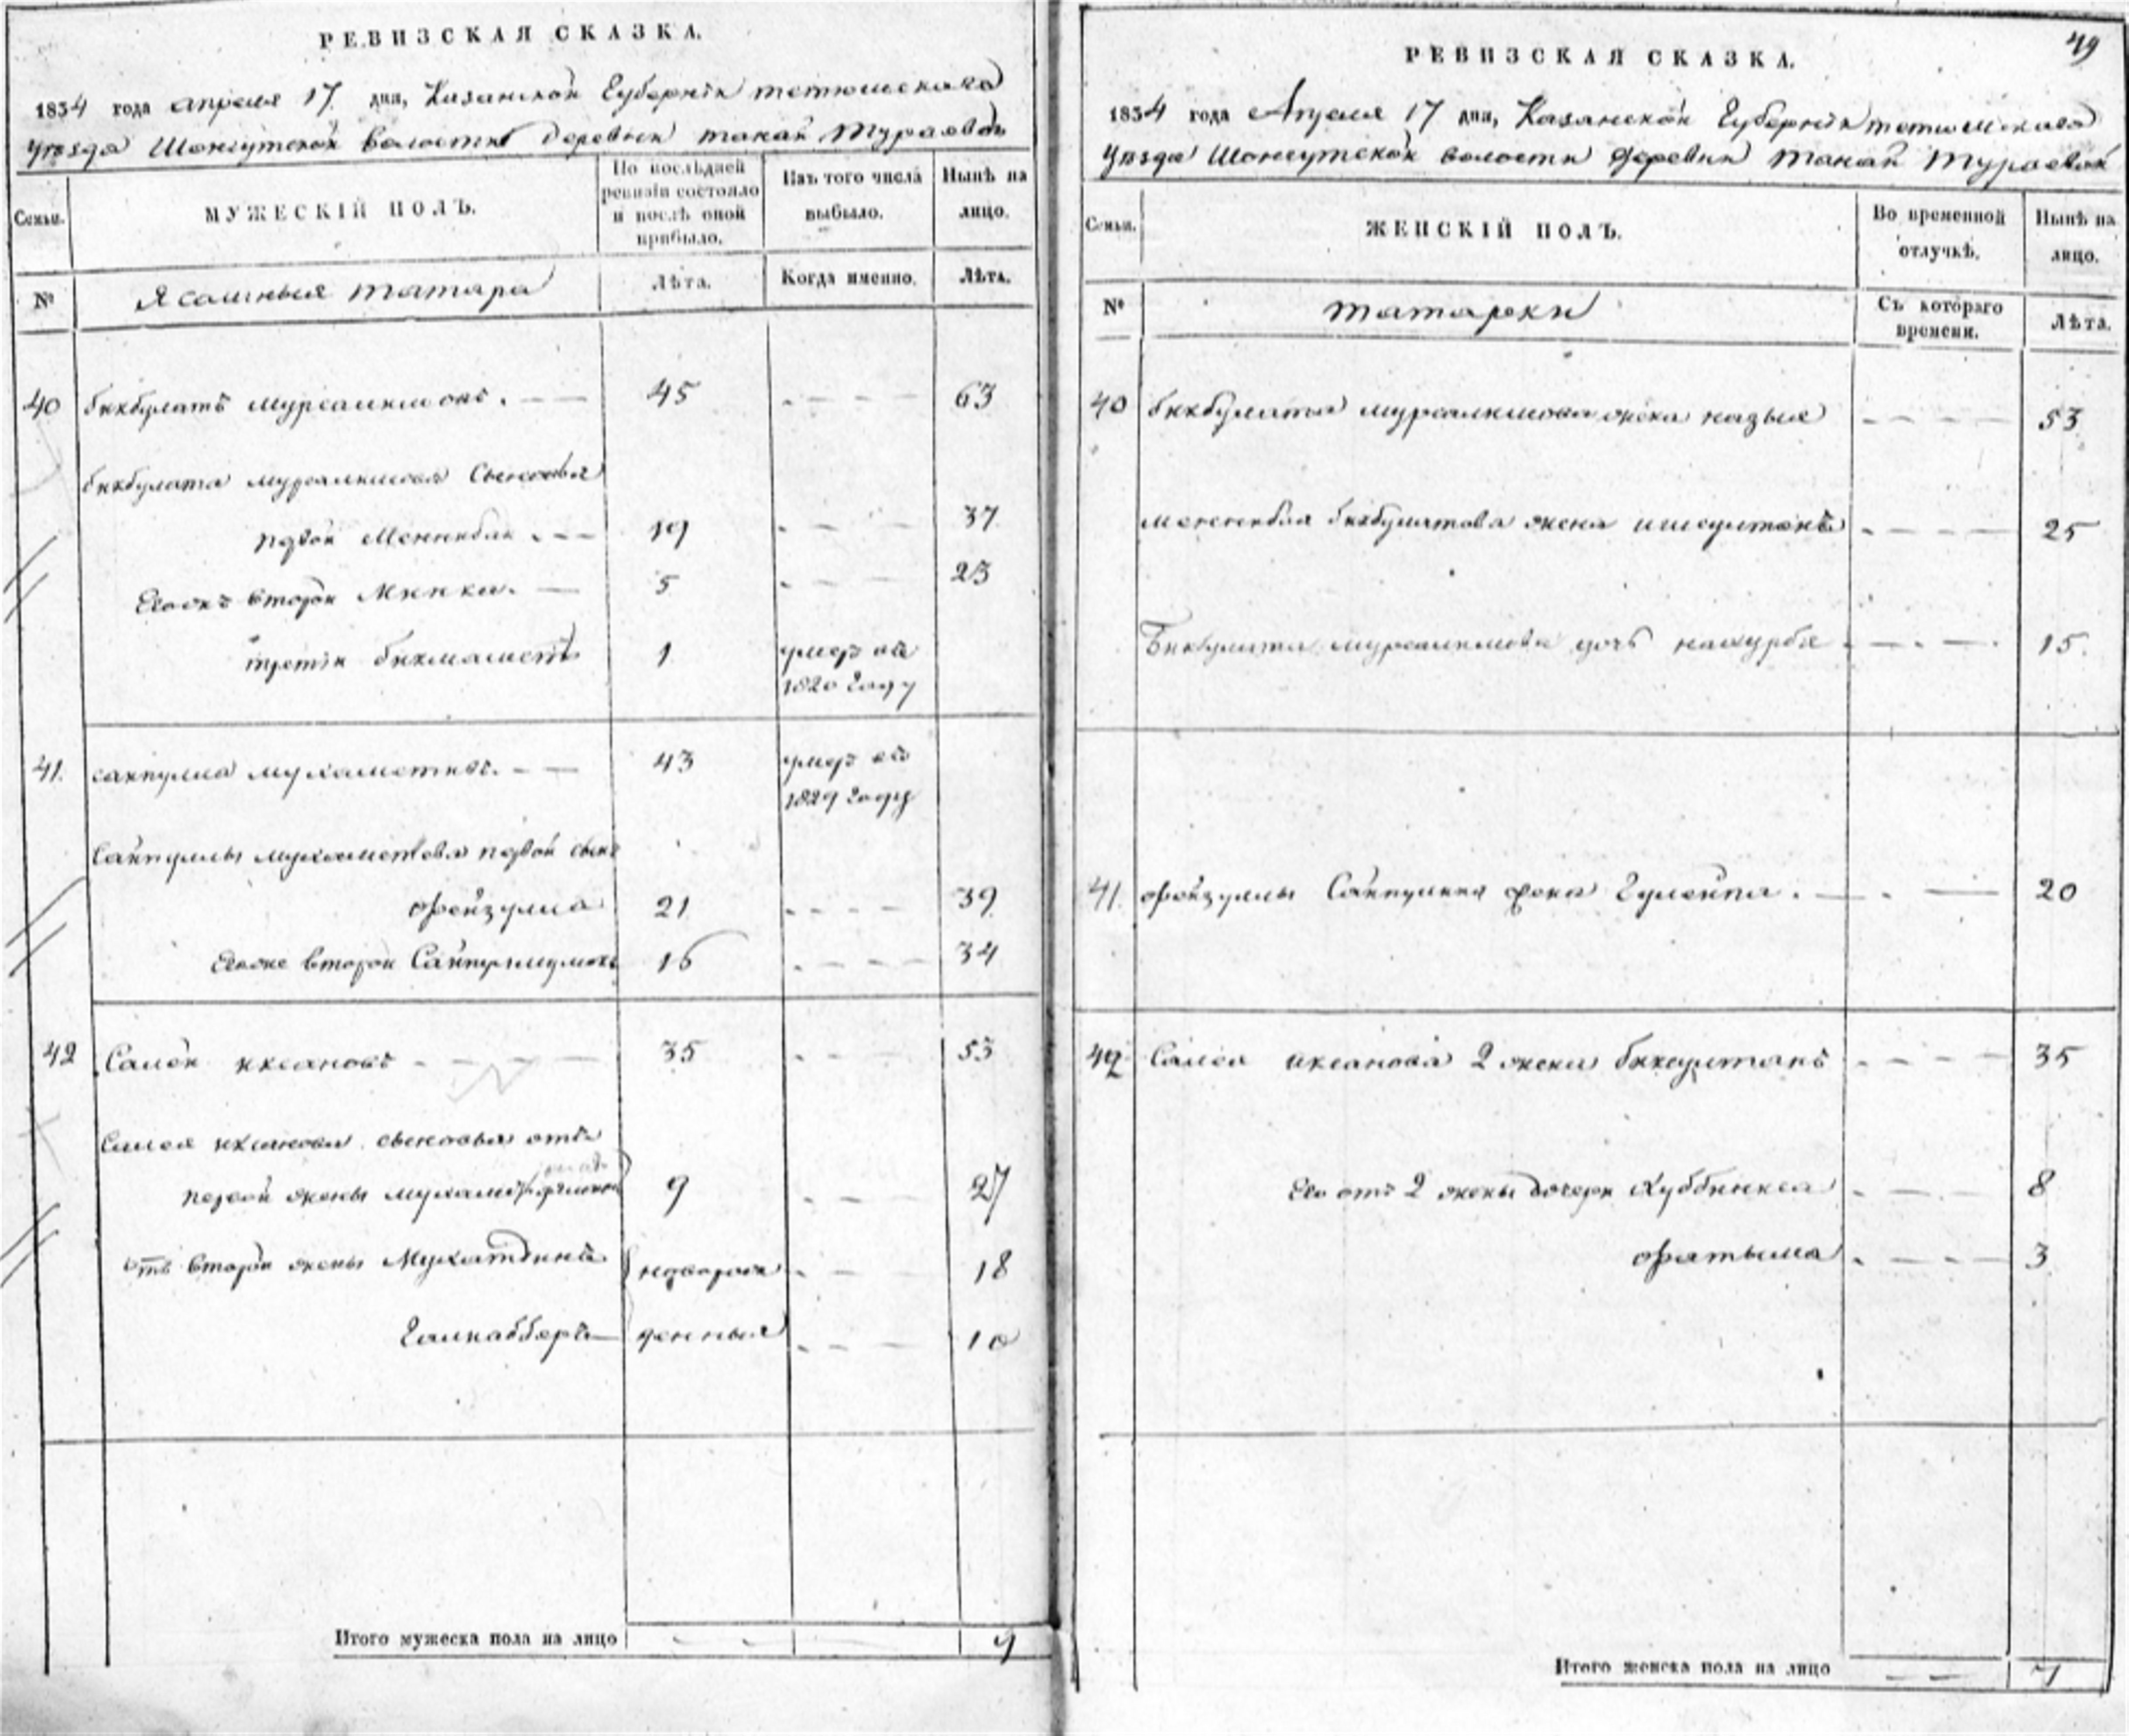 РЕВИЗСКАЯ СКАЗКА.
1834 года апреля 17 дня, Казанской Губернiи тетюшскаго
уезда Шонгутской волости деревни такай Тураевой
Семьи.
МУЖЕСКIЙ ПОЛЪ.
По послѣдней ревизiи состояло и послѣ оной прибыло.
Изъ того числа выбыло.
Нынѣ на лицо.
№
Ясашныя татара
Лѣта.
Когда именно.
Лѣта.
40 бикбулатъ мурсалимовъ. 45 63
бикбулата мурсалимова Сыновья
первой Менликбай 19 37
второй Минка. 5 23
третiй бикмаметъ 1 умер въ
1820 году
41. сайпулла мухаметевъ. 43 умер въ
1829 году
Сайпуллы мухаметова первой сынъ
фейзулла 21 39
второй 16 34
42 Салей иксановъ 35 53
Салея иксанова сыновья отъ
первой жены 9 27
отъ второй жены Мухатдинъ новорож 18
Галкабберъ денныя 10
Итого мужеска пола на лицо 9
49
РЕВИЗСКАЯ СКАЗКА.
1834 года Апреля 17 дня, Казанской Губернiи тетюшскаго
уезда Шонгутской волости деревни такай Тураевой
Семьи.
ЖЕНСКIЙ ПОЛЪ.
Во временной отлучкѣ.
Нынѣ на лицо.
№
татарки
Съ котораго времени.
Лѣта.
40 бикбулата мурсалимова жена назыя 53
бикбулатова жена ишсултанъ 25
Бикбулата мурсалимова дочь 15.
41. фейзуллы Сайпуллина жена Гулейпа. 20
42 Салея иксанова 2 жена биксултанъ 35
Его отъ 2 жены дочери Хуббникса 8
фатыма 3
Итого женска пола на лицо 7